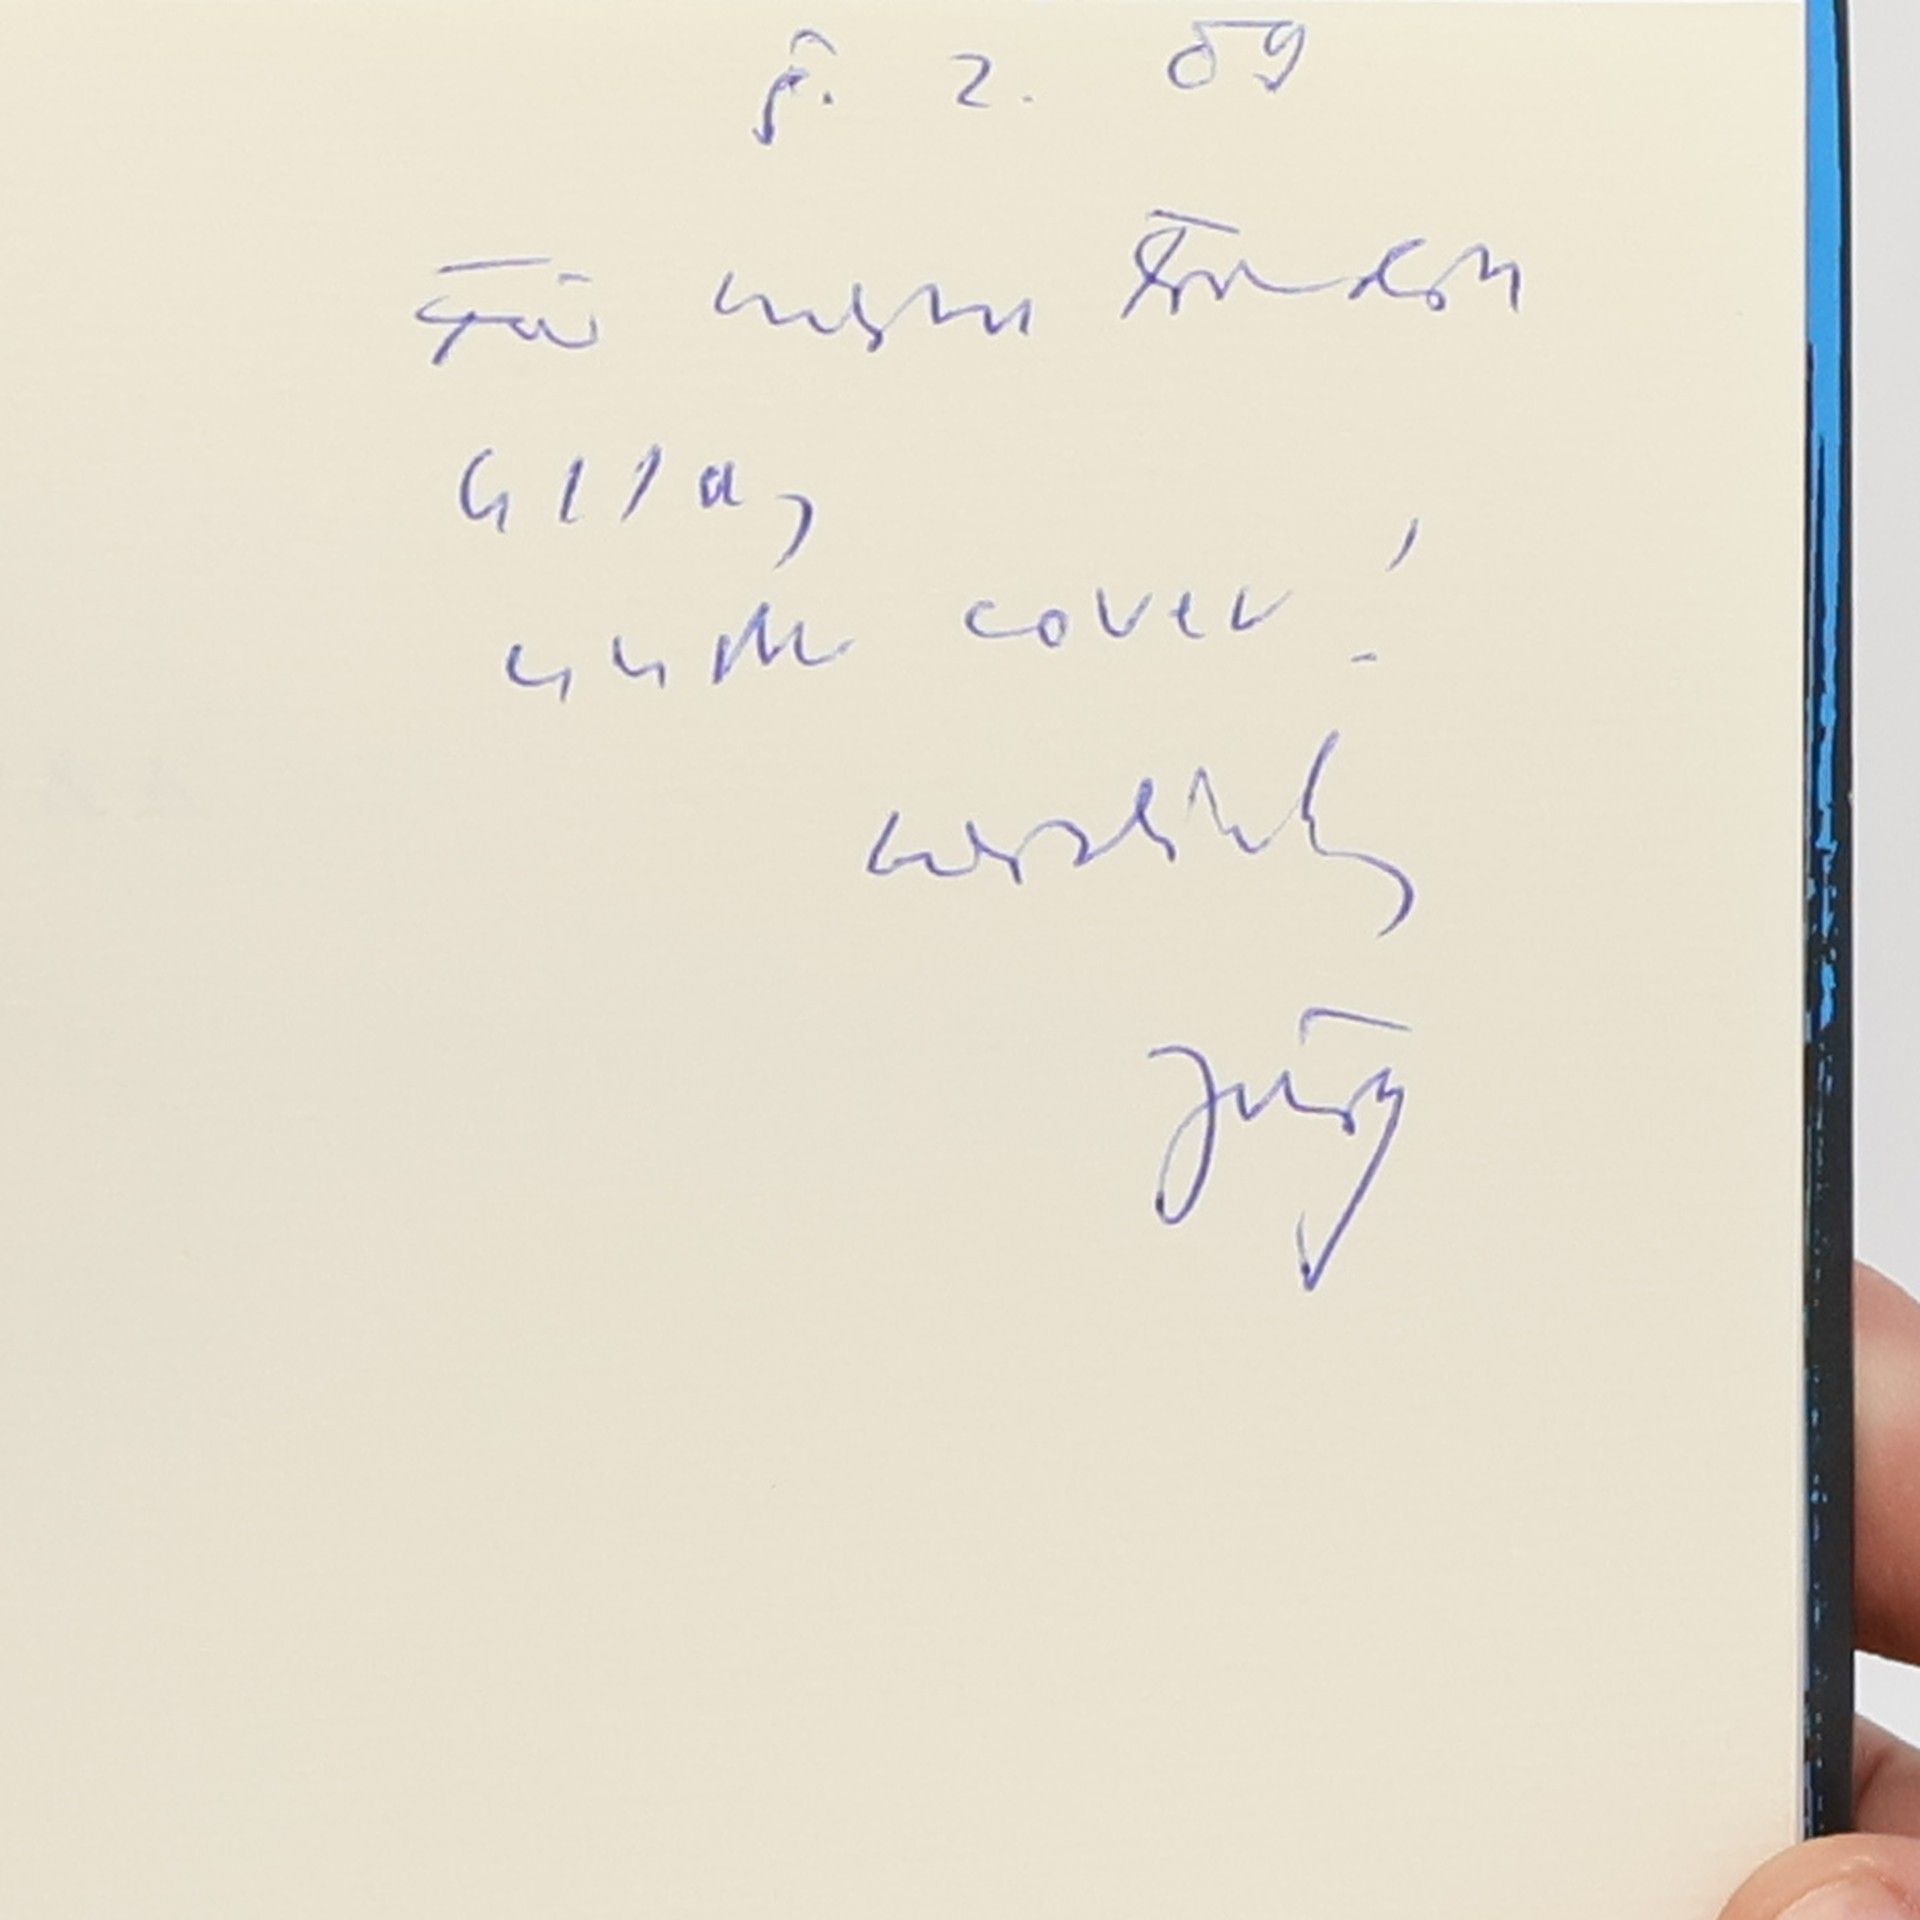 8. 2. 89
Für meinen Freund
under cover!
herzlich,
Jürg